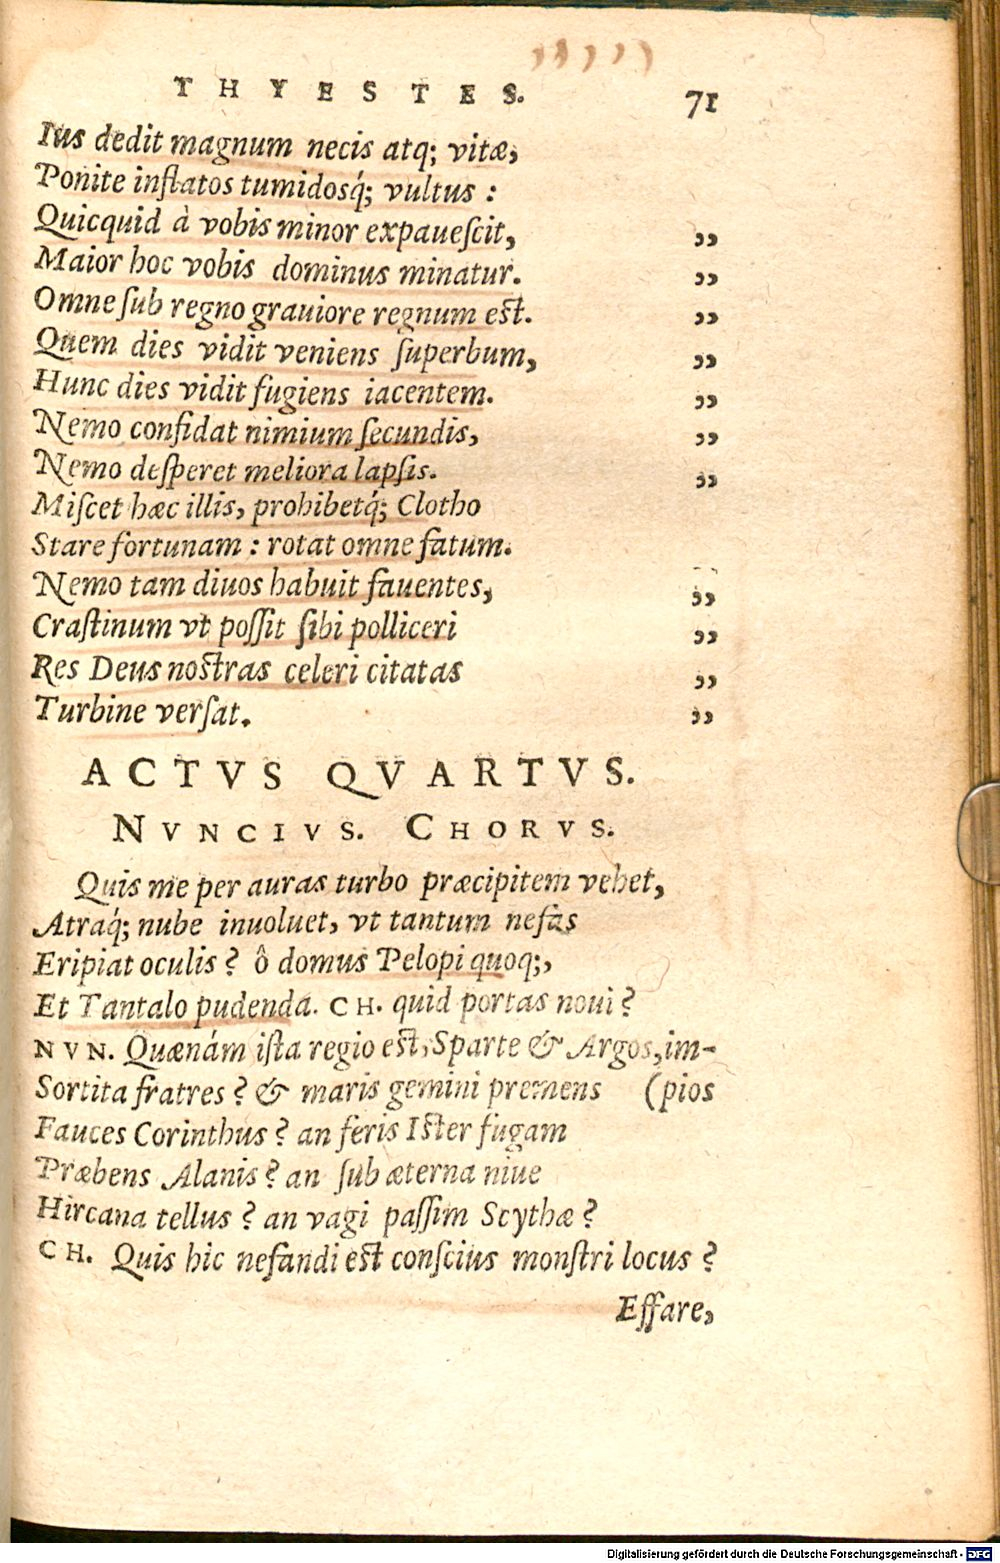 THYESTES. 71
Ius dedit magnum necis atq; vitæ,
Ponite inflatos tumidosq́; vultus :
Quicquid à vobis minor expaueſcit, ,,
Maior hoc vobis dominus minatur. ,,
Omne ſub regno grauiore regnum est. ,,
Quem dies vidit veniens ſuperbum, ,,
Hunc dies vidit fugiens iacentem. ,,
Nemo confidat nimium ſecundis, ,,
Nemo deſperet meliora lapſis. ,,
Miſcet hæc illis, prohibetq́; Clotho
Stare fortunam : rotat omne fatum.
Nemo tam diuos habuit fauentes, ,,
Craſtinum vt poſſit ſibi polliceri ,,
Res Deus nostras celeri citatas ,,
Turbine verſat. ,,
ACTVS QVARTVS.
NVNCIVS. CHORVS.
Quis me per auras turbo præcipitem vehet,
Atraq́; nube inuoluet, vt tantum nefas
Eripiat oculis? ô domus Pelopi quoq;,
Et Tantalo pudenda. CH. quid portas noui?
NVN. Quænám iſta regio est, Sparte & Argos, im-
Sortita fratres? & maris gemini premens (pios
Fauces Corinthus? an feris Ister fugam
Præbens Alanis? an ſub æterna niue
Hircana tellus? an vagi paſſim Scythæ?
CH. Quis hic nefandi est conſcius monſtri locus?
Effare,
Digitalisierung gefördert durch die Deutsche Forschungsgemeinschaft - DFG